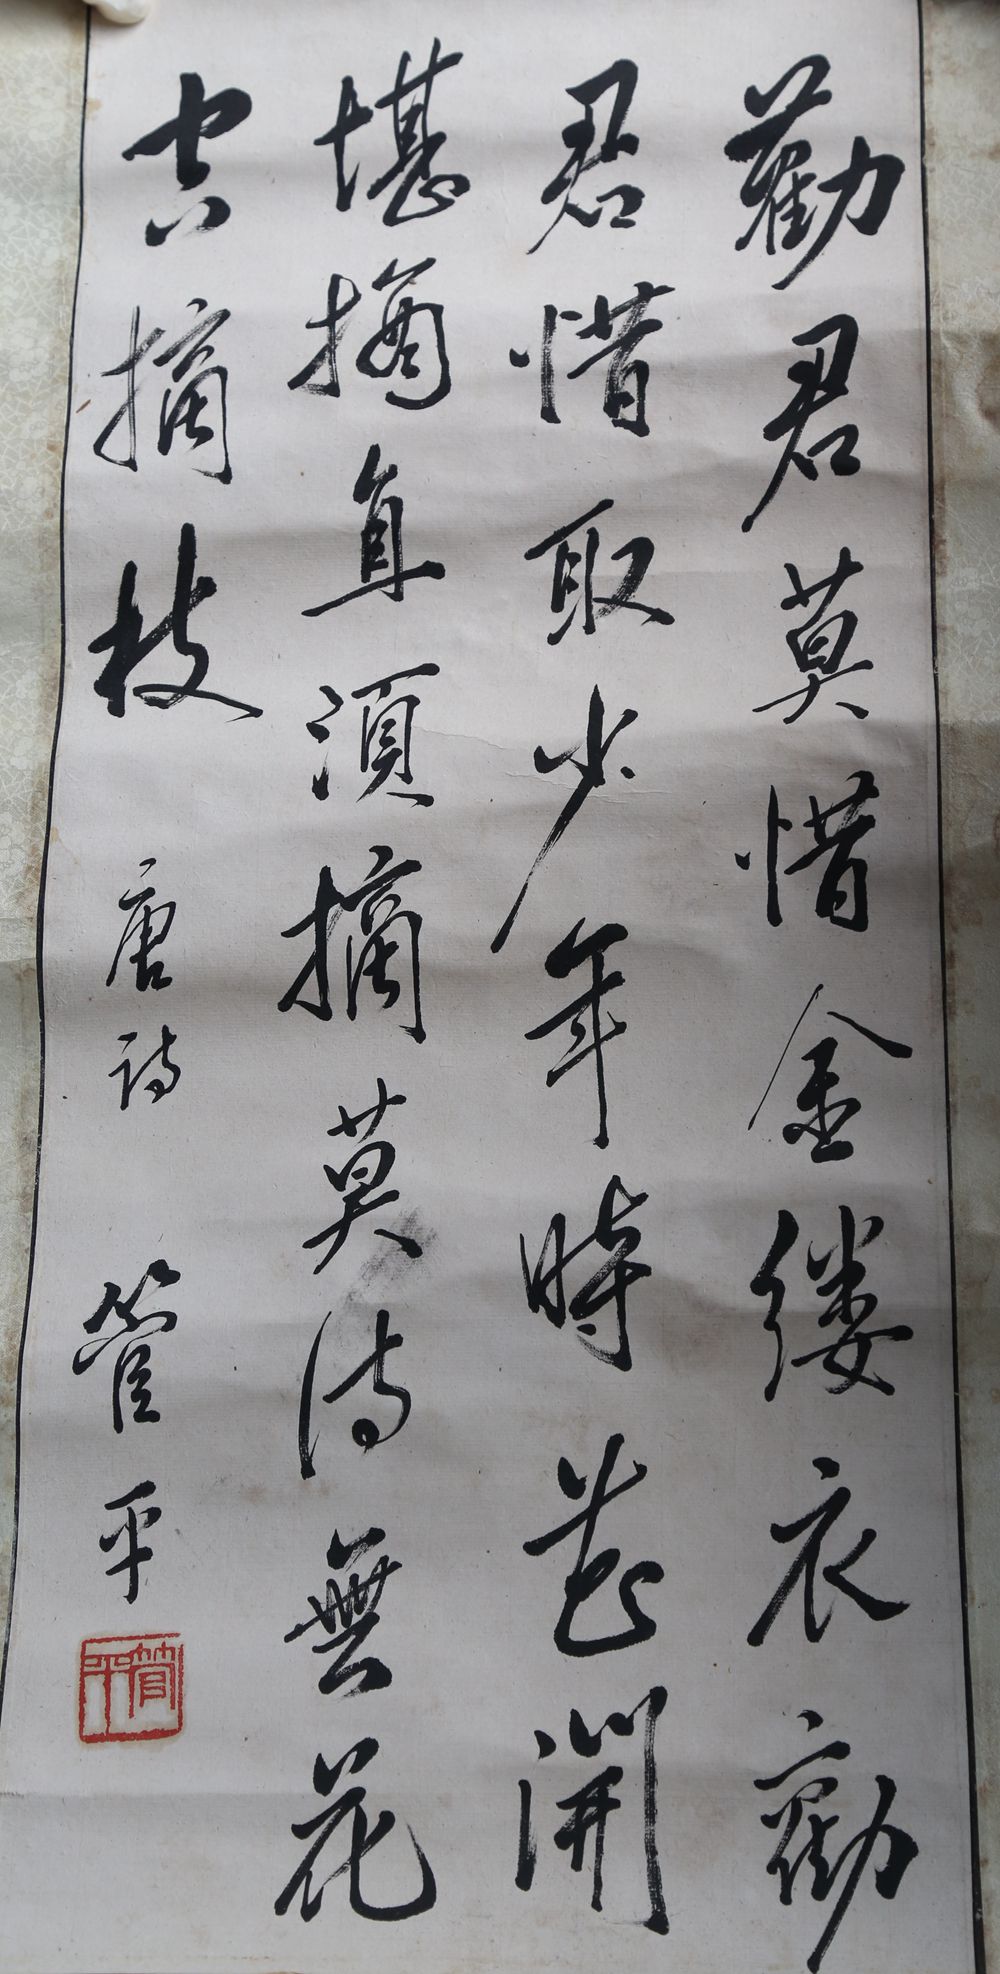 勸君莫惜金缕衣勸
君惜取少年時花開
堪摘直須摘莫待無花
空摘枝 唐诗 管平
管平